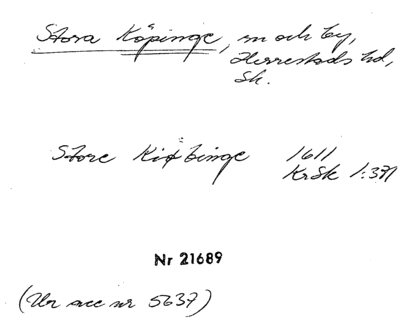 Stora Köpinge, sn och by,
Herrestads hd,
Sk.
Store Kiøbinge 1611
KrSk 1:371
Nr 21689
(Ur acc nr 5637)